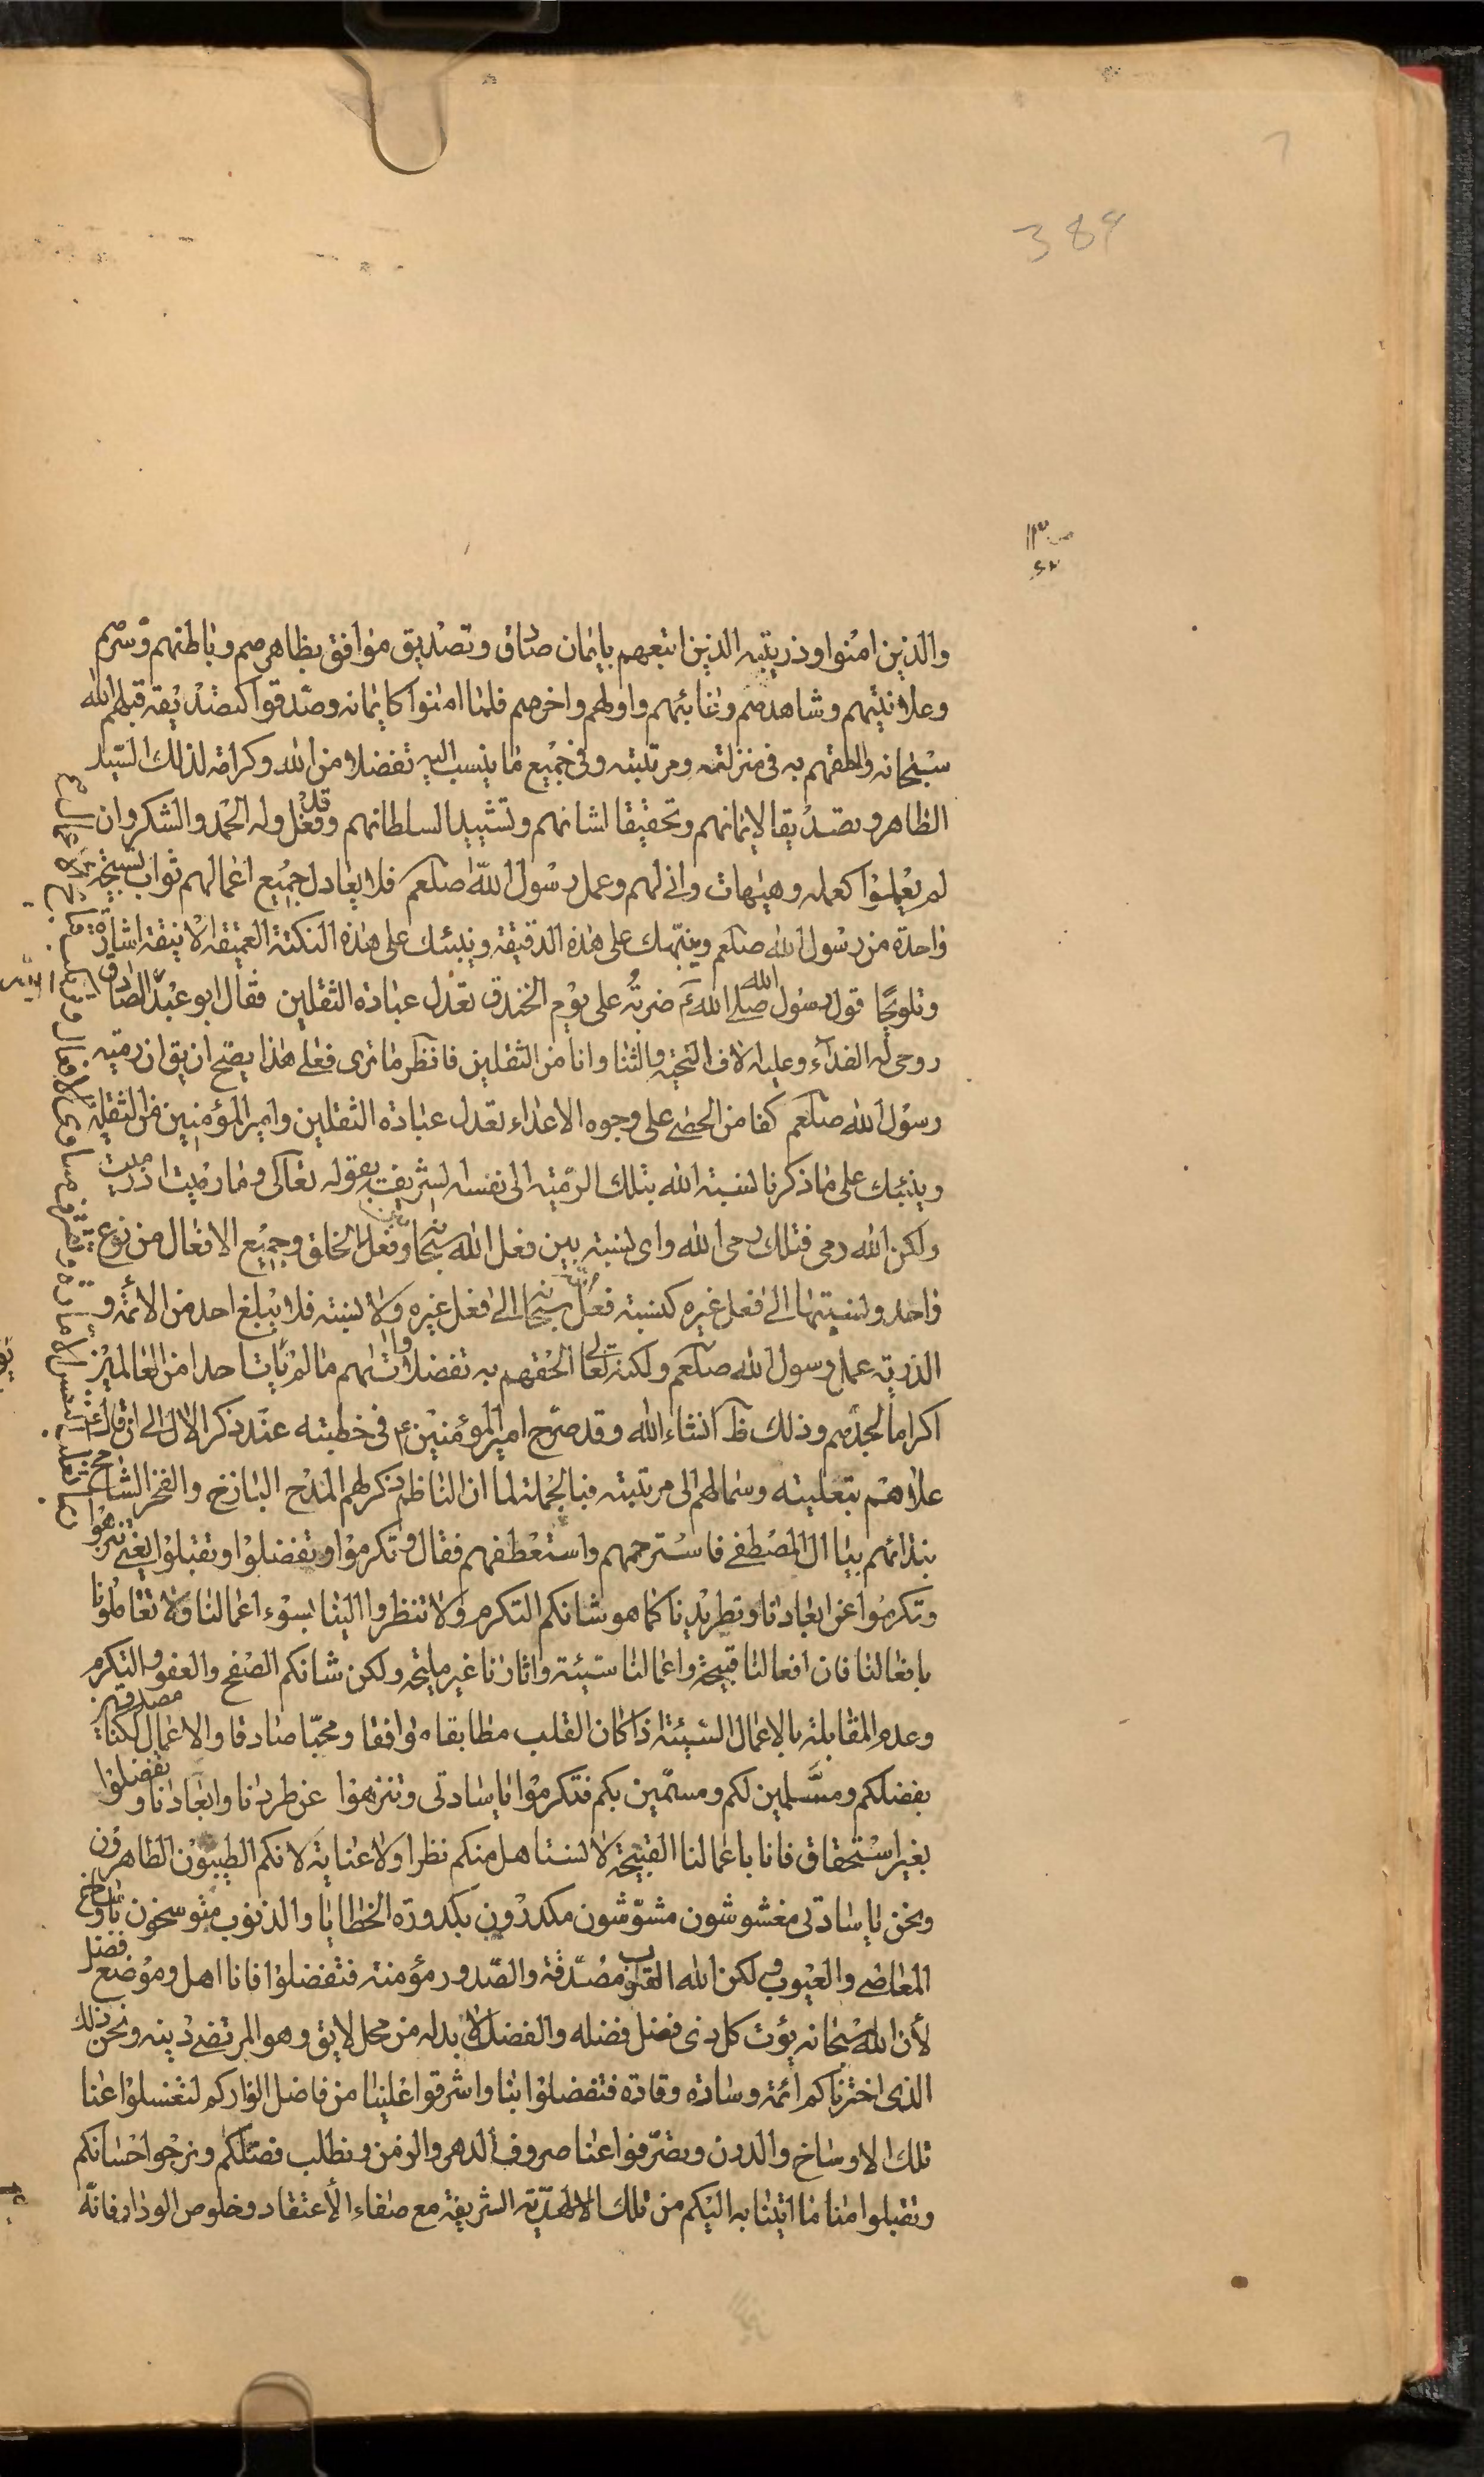 384
والذين امنوا وذريته الذين اتبعهم بايمان صادق وتصديق موافق بظاهرهم وباطنهم وسرهم
وعلانيتهم وشاهدهم وغائبهم واولهم واخرهم فلما امنوا كايمانه وصدقوا كتصديقه قبلهم الله
سبحانه والحقهم به في منزلته ومرتبته وفي جميع ما ينسب اليه تفضلا من الله وكرامة لذلك السيد
الطاهر وتصديقا لايمانهم وتحقيقا لشانهم وتشييدا لسلطانهم وقد فعل وله الحمد والشكر وان
لم يعملوا كعمله وهيهات واني لهم وعمل رسول الله صلعم فلا يعادل جميع اعمالهم ثواب تسبيحة
واحدة من رسول الله صلعم وينبهك على هذه الدقيقة وينبئك على هذه النكتة العميقة الانيقة اشارة
وتلويحا قول رسول الله صلى الله ضربة على يوم الخندق تعدل عبادة الثقلين فقال ابو عبد الله الصادق
روحي له الفداء وعليه الاف التحية والثنا وانا من الثقلين فانظر ما ترى فعلى هذا يصح ان يق ان رمية
رسول الله صلعم كفا من الحصى على وجوه الاعداء تعدل عبادة الثقلين وامير المؤمنين من الثقلين
وينبئك على ما ذكرنا لنسبة الله بتلك الرمية الى نفسه الشريف بقوله تعالى وما رميت اذ رميت
ولكن الله رمى فتلك رمى الله واي نسبة بين فعل الله سبحانه وفعل الخلق وجميع الافعال من نوع
واحد ونسبتها الى فعل غيره كنسبة فعل سبحانه الى فعل غيره ولا نسبة فلا يبلغ احد من الائمة و
الذرية عمل رسول الله صلعم ولكنه تعالى الحقهم به تفضلا واتاهم ما لم يات احدا من العالمين
اكراما لجدهم وذلك ظ انشاء الله وقد صرح امير المؤمنين ع في خطبته عند ذكر الال الى ان قال
علاهم بتعليته وسما لهم الى مرتبته فبالجملة لما ان الناظم ذكر لهم المدح الباذخ والفخر الشامخ
بندائهم بيا ال المصطفى فاسترحمهم واستعطفهم فقال وتكرموا وتفضلوا وتقبلوا يعني تنزهوا
وتكرموا عن ابعادنا وتطريدنا كما هو شانكم التكرم ولا تنظروا الينا بسوء اعمالنا ولا تعاملونا
بافعالنا فان افعالنا قبيحة واعمالنا سيئة واثارنا غير مليحة ولكن شانكم الصفح والعفو والتكرم
وعدم المقابلة بالاعمال السيئة اذا كان القلب مطابقا موافقا ومحبا صادقا والاعمال لكنا مصدقين
بفضلكم ومسلمين لكم ومسمين بكم فتكرموا يا سادتي وتنزهوا عن طردنا وابعادنا وتفضلوا
بغير استحقاق فانا باعمالنا القبيحة لا نستاهل منكم نظرا ولا عناية لانكم الطيبون الطاهرون
ونحن يا سادتي مغشوشون مشوشون مكدرون بكدورة الخطايا والذنوب متوسخون باوساخ
المعاصي والعيوب ولكن الله القلوب مصدقة والصدور مؤمنة فتفضلوا فانا اهل وموضع فضل
لأن الله سبحانه يؤت كل ذي فضل فضله والفضل لا بد له من محل لايق وهو المرتضى دينه ونحن ذلك
الذي اخترناكم ائمة وسادة وقادة فتفضلوا بنا واشرقوا علينا من فاضل انواركم لتغسلوا عنا
تلك الاوساخ والدرن وتصرفوا عنا صروف الدهر والزمن ونطلب فضلكم ونرجوا احسانكم
وتقبلوا منا ما اتينا به اليكم من تلك الالهدية الشريفة مع صفاء الأعتقاد وخلوص الوداد فانه